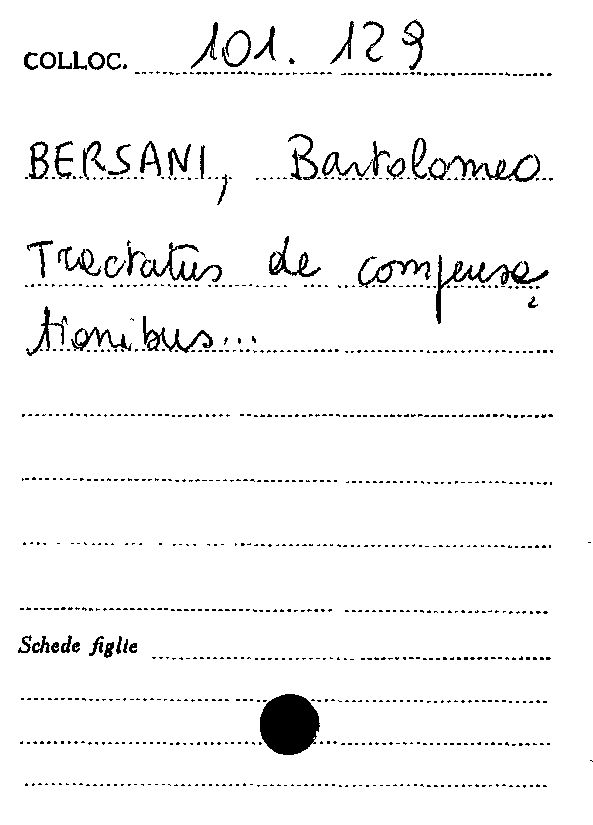 COLLOC. 101. 129
BERSANI, Bartolomeo
Tractatus de compensa
tionibus...
Schede figlie